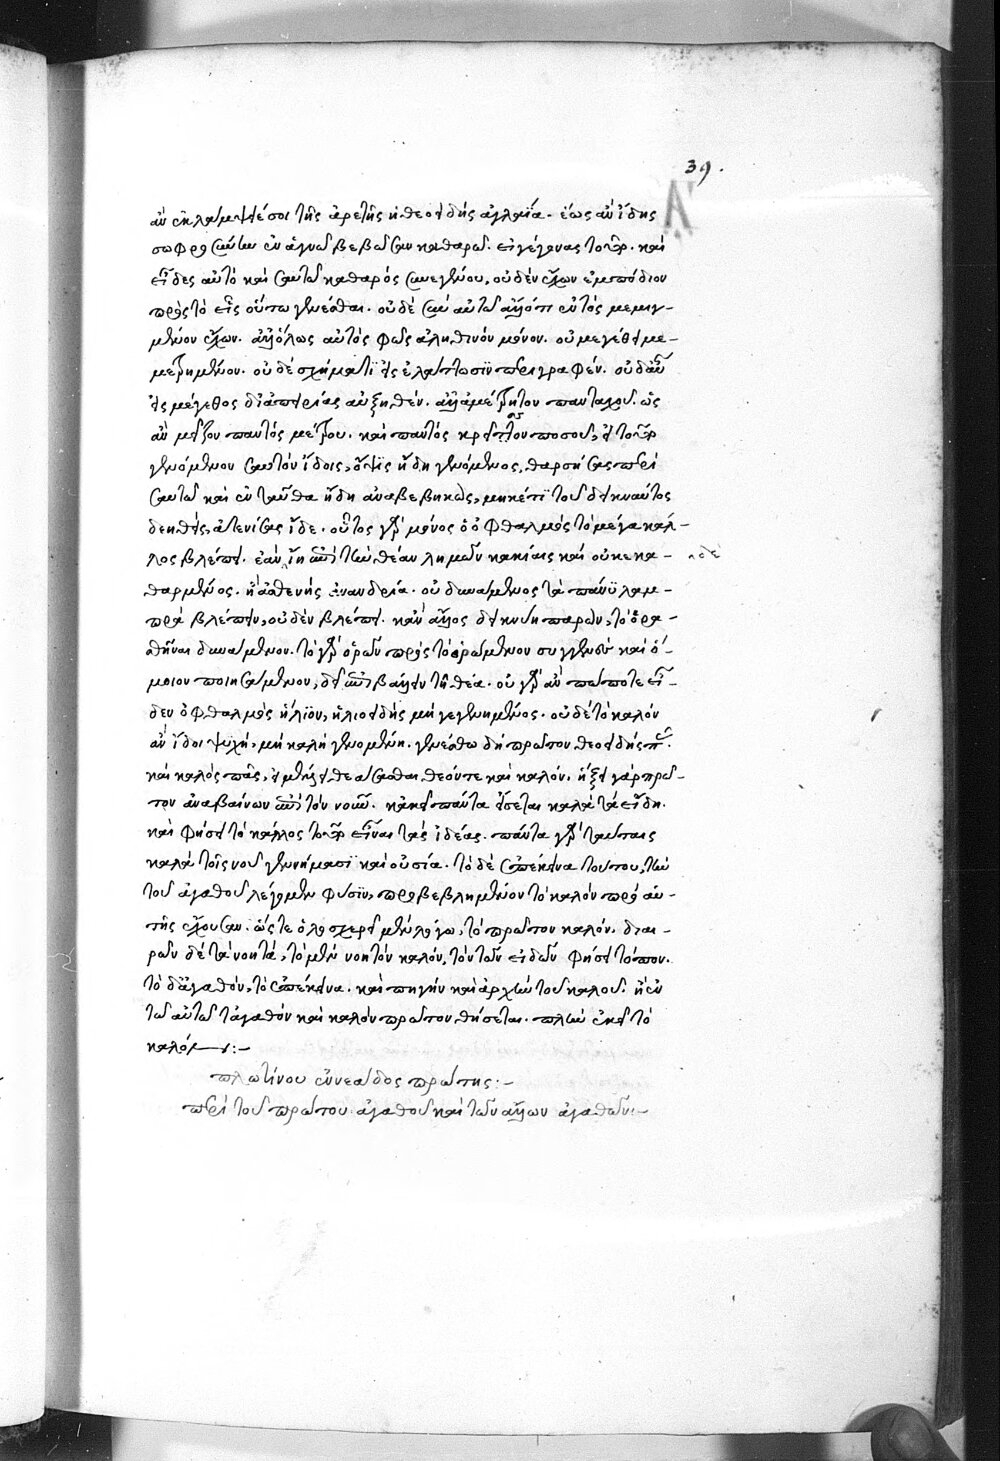 39.
ἂν ἐκλάμψειέ σοι τῆς ἀρετῆς ἡ θεοειδὴς ἀγλαΐα. ἕως ἂν ἴδης
σωφροσύνην ἐν ἁγνῶ βεβῶσαν καθαρῶ. εἰ γέγονας τοῦτο. καὶ
εἶδες αὐτὸ καὶ σαυτῶ καθαρὸς συνεγένου, οὐδὲν ἔχων ἐμπόδιον
πρὸς τὸ εἷς οὕτω γενέσθαι. οὐδὲ σὺν αὐτῶ ἄλλό τι ἐντὸς μεμιγ-
μένον ἔχων. ἀλλ' ὅλως αὐτὸς φῶς ἀληθινὸν μόνον. οὐ μεγέθει με-
μετρημένον. οὐδὲ σχήματι εἰς ἐλάττωσιν περιγραφέν. οὐδ' αὖ
εἰς μέγεθος δι' ἀπειρίας αὐξηθέν. ἀλλ' ἀμέτρητον πανταχοῦ. ὡς
ἂν μεῖζον παντὸς μέτρου. καὶ παντὸς κρεῖττον ποσοῦ, εἰ τοῦτο
γενόμενον σαυτὸν ἴδοις, ὄψις ἤδη γενόμενος, θαρσήσας περὶ
σαυτῶ καὶ ἐνταῦθα ἤδη ἀναβεβηκὼς, μηκέτι τοῦ δεικνύντος
δεηθεὶς, ἀτενίσας ἴδε. οὗτος γὰρ μόνος ὁ ὀφθαλμὸς τὸ μέγα κάλ-
λος βλέπει. ἐὰν ἴη ἐπὶ τὴν θέαν λημῶν κακίαις καὶ οὐ κεκα- δὲ
θαρμένος. ἢ ἀσθενὴς ἀνανδρία. οὐ δυνάμενος τὰ πάνυ λαμ-
πρὰ βλέπειν, οὐδὲν βλέπει. κἂν ἄλλος δεικνύη παρὸν, τὸ ὁρα-
θῆναι δυνάμενον. τὸ γὰρ ὁρῶν πρὸς τὸ ὁρώμενον συγγενὲς καὶ ὅ-
μοιον ποιησάμενον, δεῖ ἐπιβάλλειν τῆ θέα. οὐ γὰρ ἂν πώποτε εἶ-
δεν ὀφθαλμὸς ἥλιον, ἡλιοειδὴς μὴ γεγενημένος. οὐδὲ τὸ καλὸν
ἂν ἴδοι ψυχὴ, μὴ καλὴ γενομένη. γενέσθω δὴ πρῶτον θεοειδὴς πᾶς.
καὶ καλὸς πᾶς, εἰ μέλλει θεάσασθαι θεόν τε καὶ καλόν. ἥξει γὰρ πρῶ-
τον ἀναβαίνων ἐπὶ τὸν νοῦν. κἀκεῖ πάντα εἴσεται καλὰ τὰ εἴδη.
καὶ φήσει τὸ κάλλος τοῦτο εἶναι τὰς ἰδέας. πάντα γὰρ ταύταις
καλὰ τοῖς νοῦ γεννήμασι καὶ οὐσία. τὸ δὲ ἐπέκεινα τούτου, τὴν
τοῦ ἀγαθοῦ λέγομεν φύσιν, προβεβλημένον τὸ καλὸν πρὸ αὐ-
τῆς ἔχουσαν. ὥστε ὁλοσχερεῖ μὲν λόγω, τὸ πρῶτον καλόν. διαι-
ρῶν δὲ τὰ νοητὰ, τὸ μὲν νοητὸν καλὸν, τὸν τῶν εἰδῶν φήσει τόπον.
τὸ δ' ἀγαθὸν, τὸ ἐπέκεινα. καὶ πηγὴν καὶ ἀρχὴν τοῦ καλοῦ. ἢ ἐν
τῶ αὐτῶ τἀγαθὸν καὶ καλὸν πρῶτον θήσεται. πλὴν ἐκεῖ τὸ
καλόν:-
πλωτίνου ἐννεάδος πρώτης:-
περὶ τοῦ πρώτου ἀγαθοῦ καὶ τῶν ἄλλων ἀγαθῶν:-